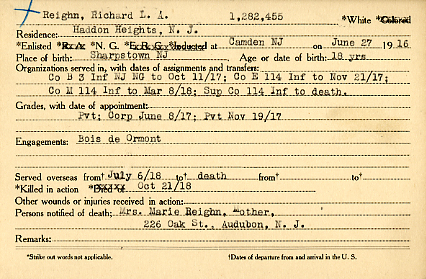 Reighn, Richard L. A. 1,282,455 *White *Colored
Residence: Haddon Heights, N. J.
*Enlisted *R.A. *N. G. *E.R.C. *Inducted at Camden NJ on June 27 1916
Place of birth: Sharpstown NJ Age or date of birth: 18 yrs
Organizations served in, with dates of assignments and transfers:
Co B 3 Inf NJ NG to Oct 11/17; Co E 114 Inf to Nov 21/17;
Co M 114 Inf to Mar 8/18; Sup Co 114 Inf to death.
Grades, with date of appointment:
Pvt; Corp June 8/17; Pvt Nov 19/17
Engagements: Bois de Ormont
Served overseas from† July 6/18 to† death from† to†
*Killed in action *Died of Oct 21/18
Other wounds or injuries received in action:
Persons notified of death: Mrs. Marie Reighn, Mother,
226 Oak St., Audubon, N. J.
Remarks:
*Strike out words not applicable. †Dates of departure from and arrival in the U. S.